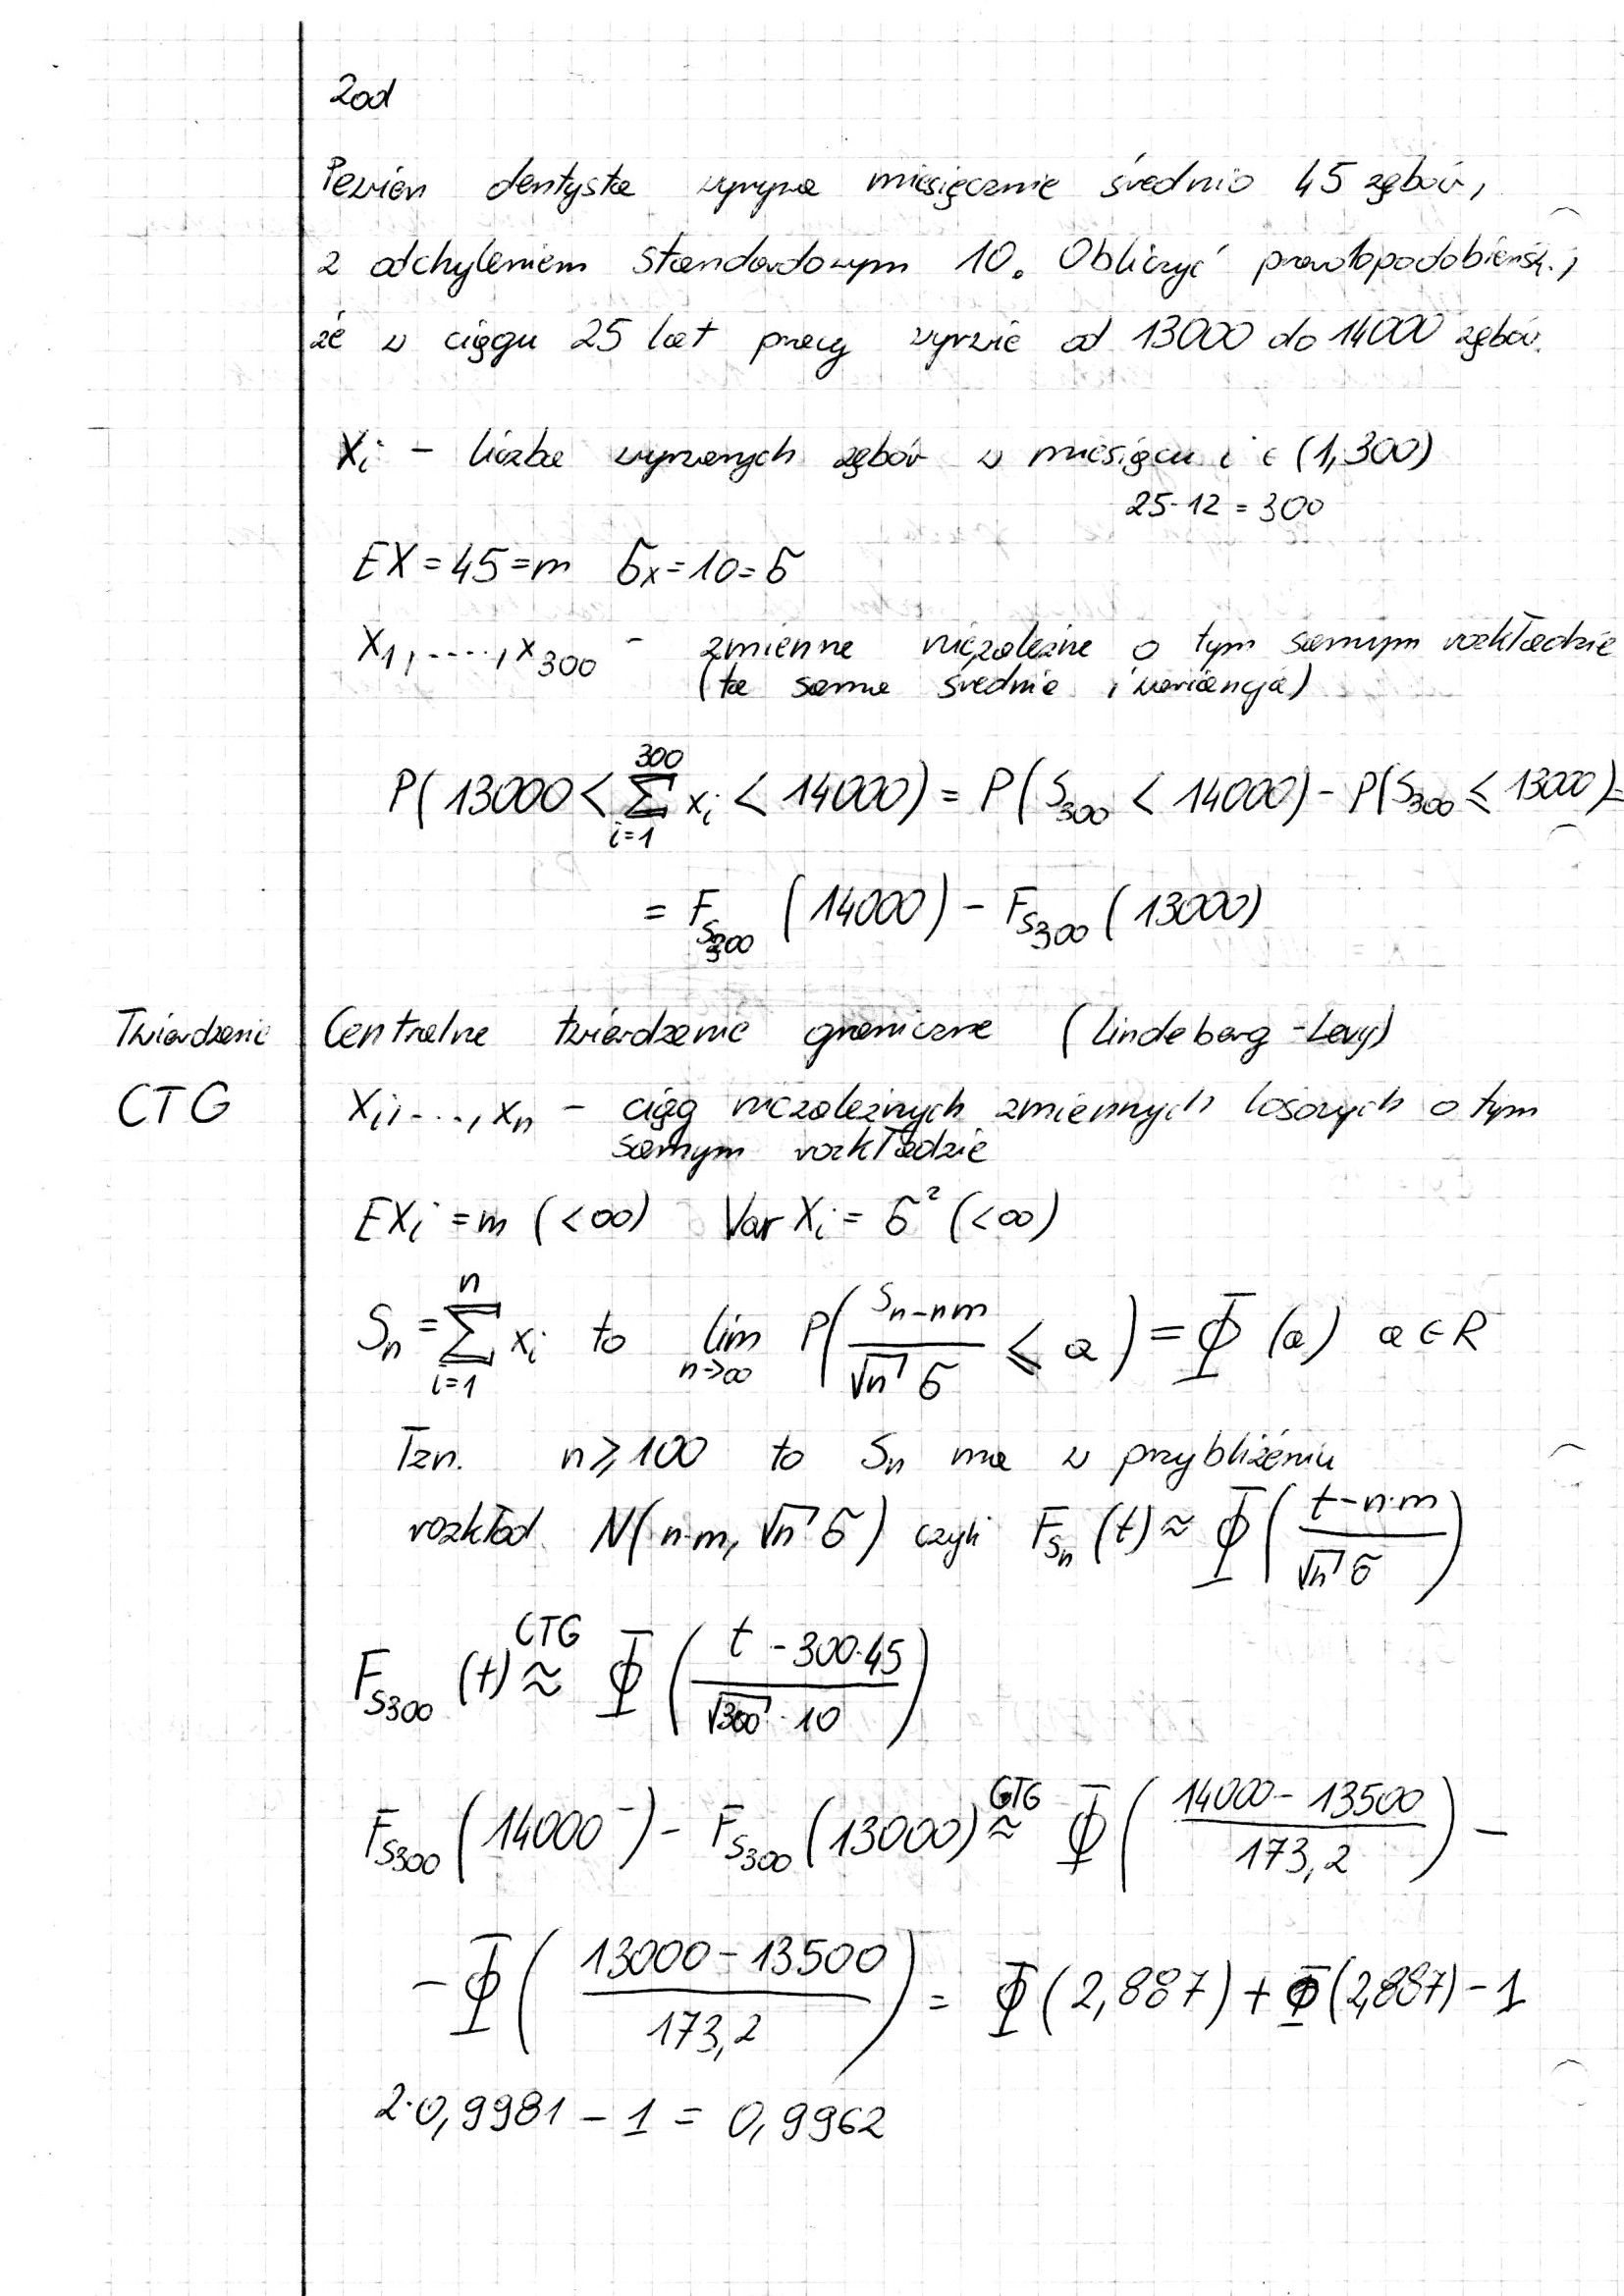 Zad
Pewien dentysta wyrywa miesięcznie średnio 45 zębów,
z odchyleniem standardowym 10. Obliczyć prawdopodobieńst.,
że w ciągu 25 lat pracy wyrwie od 13000 do 14000 zębów.
Xi – liczba wyrwanych zębów w miesiącu i ∈ (1,300)
25·12 = 300
EX = 45 = m   σx = 10 = σ
X1, ...., X300 – zmienne niezależne o tym samym rozkładzie
(ta sama średnia i wariancja)
P(13000 < ∑_{i=1}^{300} xi < 14000) = P(S300 < 14000) – P(S300 ≤ 13000) =
= F_{S300}(14000) – F_{S300}(13000)
Twierdzenie Centralne twierdzenie graniczne (Lindeberg-Levy)
CTG Xi, ..., Xn – ciąg niezależnych zmiennych losowych o tym
samym rozkładzie
EXi = m (<∞)   Var Xi = σ² (<∞)
Sn = ∑_{i=1}^{n} xi to lim_{n→∞} P((Sn – nm)/(√n σ) ≤ a) = Φ(a) a ∈ R
Tzn. n ≥ 100 to Sn ma w przybliżeniu
rozkład N(n·m, √n σ) czyli F_{Sn}(t) ≈ Φ((t – n·m)/(√n σ))
F_{S300}(t) ≈^{CTG} Φ((t – 300·45)/(√300 · 10))
F_{S300}(14000⁻) – F_{S300}(13000) ≈^{CTG} Φ((14000 – 13500)/173,2) –
– Φ((13000 – 13500)/173,2) = Φ(2,887) + Φ(2,887) – 1
2·0,9981 – 1 = 0,9962